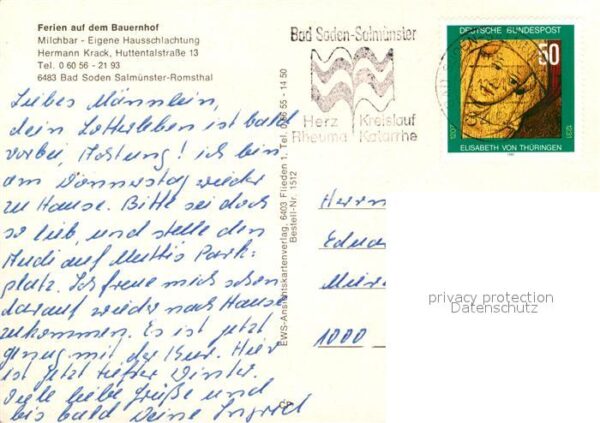 Ferien auf dem Bauernhof
Milchbar - Eigene Hausschlachtung
Hermann Krack, Huttentalstraße 13
Tel. 0 60 56 - 21 93
6483 Bad Soden Salmünster-Romsthal
Liebes Männlein,
dein Lotterleben ist bald
vorbei, Achtung! ich bin
am Donnerstag wieder
zu Hause. Bitte sei doch
so lieb, und stelle den
Audi auf Muttis Park-
platz. Ich freue mich schon
darauf wieder nach Hause
zukommen. Es ist jetzt
genug mit der Kur. Hier
ist jetzt tiefer Winter.
Viele liebe Grüße und
bis bald Deine Ingrid
EWS-Ansichtskartenverlag, 6403 Flieden 1, Tel. 0 66 55 - 14 50
Bestell-Nr. 1512
Bad Soden-Salmünster
Herz Kreislauf
Rheuma Katarrhe
DEUTSCHE BUNDESPOST
50
1207
1231
ELISABETH VON THÜRINGEN
Herrn
1000
privacy protection
Datenschutz